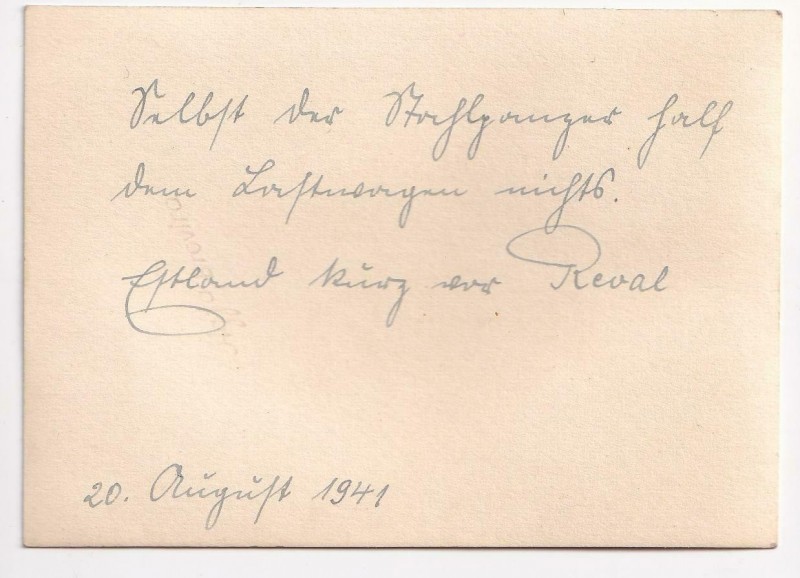 Selbst der Stahlpanzer half
dem Lastwagen nichts.
Estland kurz vor Reval
20. August 1941